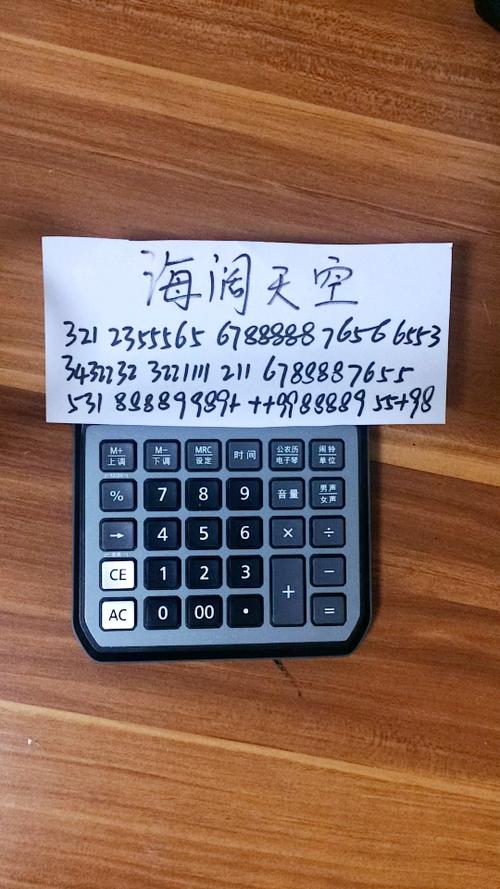 海阔天空
321 2355565 6788888 7656 6553
3432232 3221111 211 6788887655
531 88889989+ ++9988889 55+98
M+ 上调 M- 下调 MRC 设定 时间 公农历 电子琴 闹铃 单位
% 7 8 9 音量 男声 女声
→ 4 5 6 × ÷
CE 1 2 3 + −
AC 0 00 • =